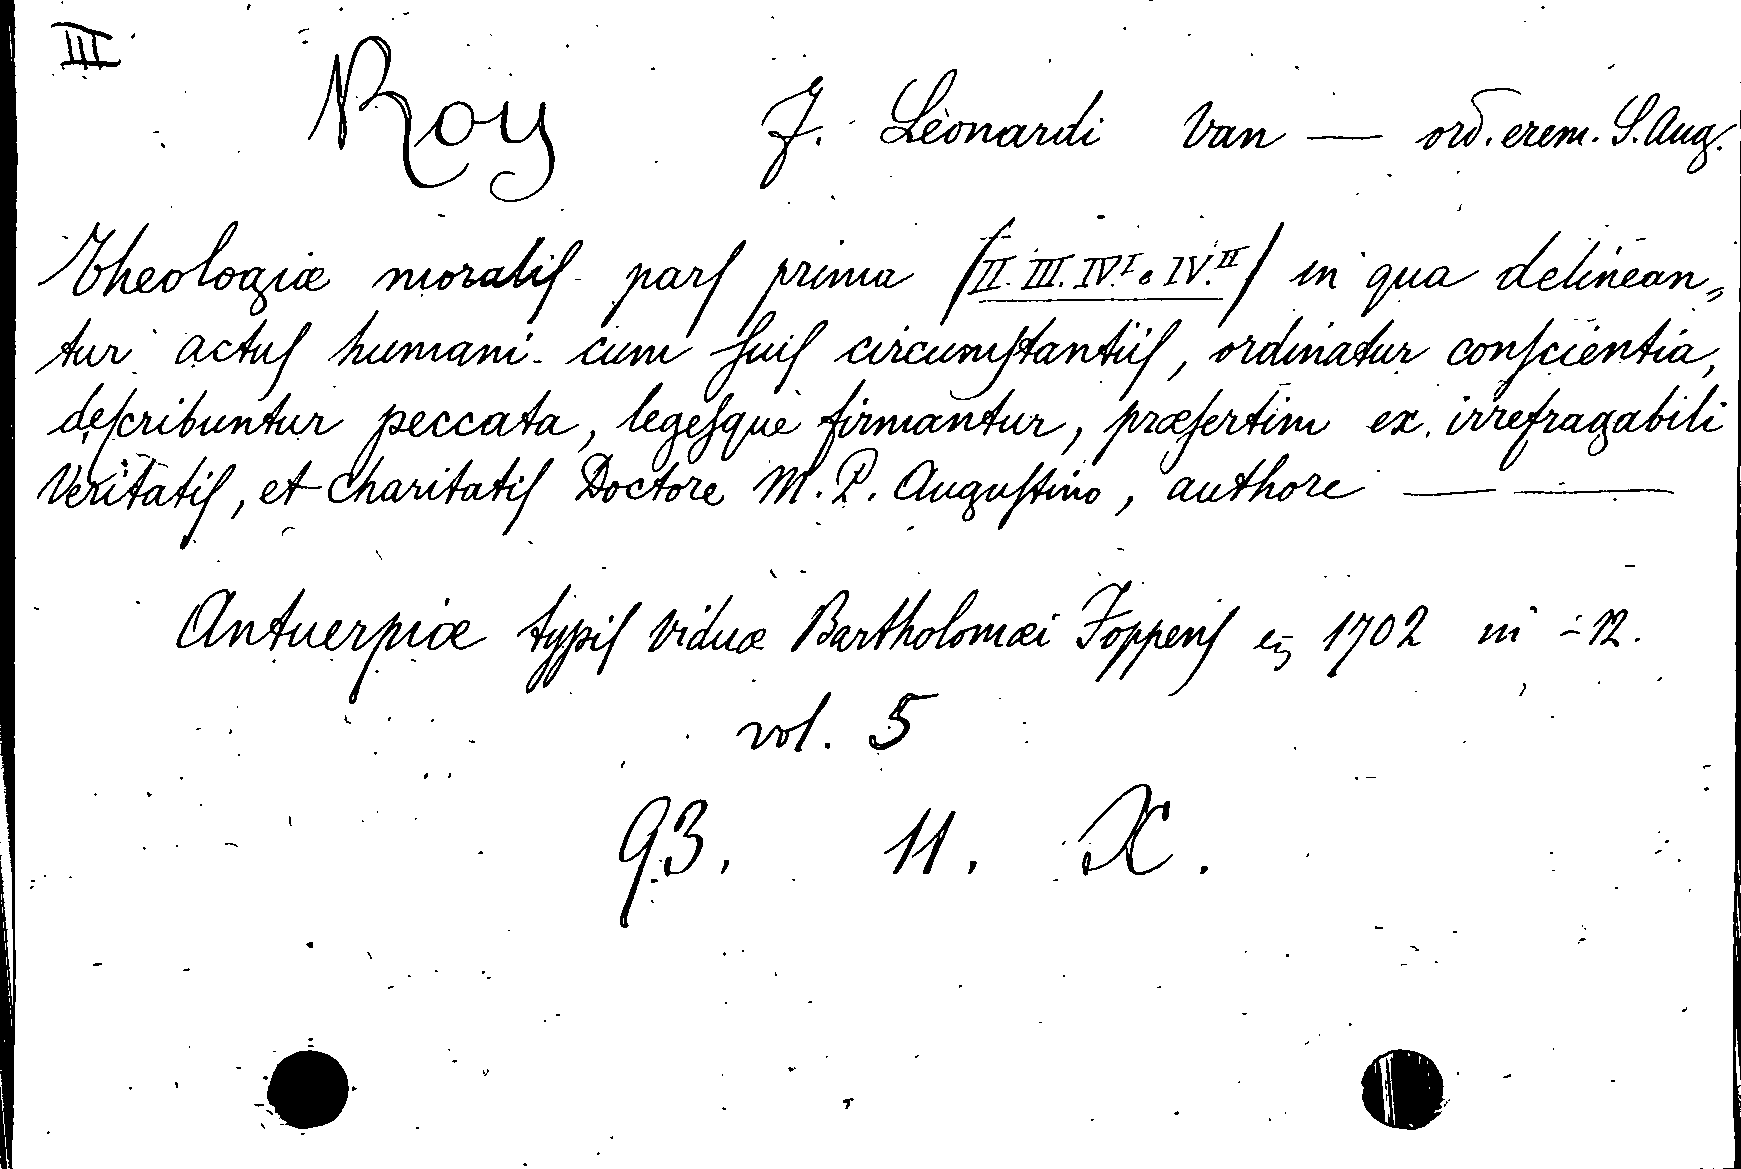 III
Roy F. Leonardi Van — ord. erem. S. Aug.
Theologiæ moraliſ parſ prima (II. III. IV.I e IV.II) in qua delinean„
tur actuſ humani cum ſuiſ circumſtantiiſ, ordinatur conſcientia,
deſcribuntur peccata, legeſque firmantur, præſertim ex irrefragabili
Veritatiſ, et Charitatiſ Doctore M. P. Auguſtino, authore — —
Antuerpiæ typiſ Viduæ Bartholomæi Foppenſ 1702 in -12.
vol. 5
93. 11. X.